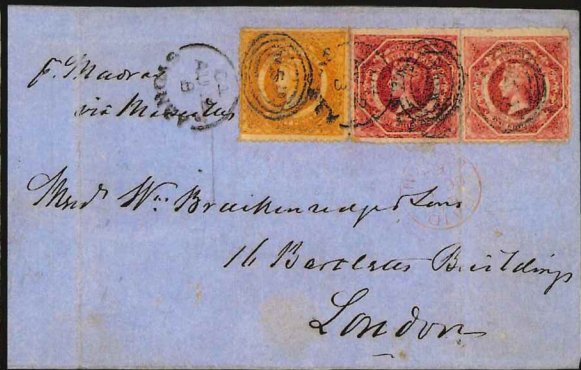 p. Madras
via Mauritius
SYDNEY
AU
NSW
Messrs Wm Brackenridge & Sons
16 Bartletts Buildings
London